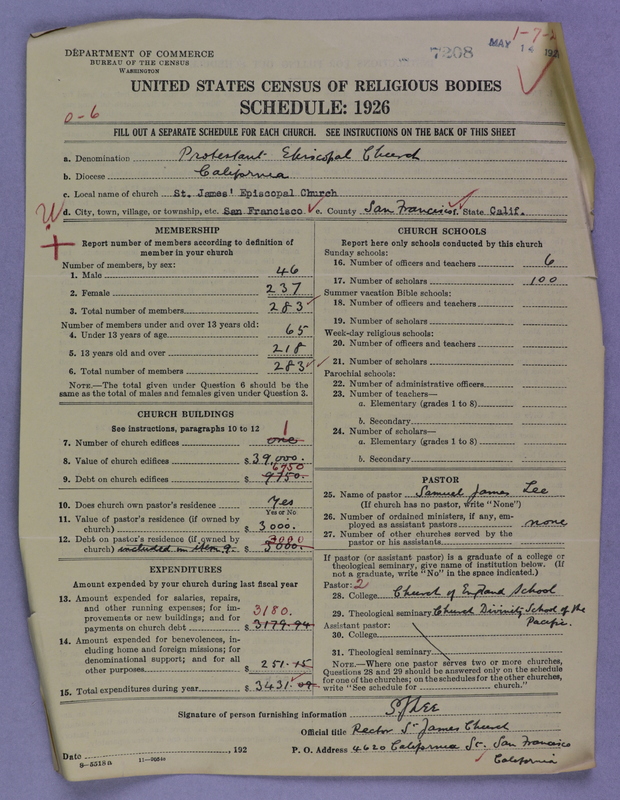 DEPARTMENT OF COMMERCE
BUREAU OF THE CENSUS
WASHINGTON
7208
MAY 14 192
1-7-2
UNITED STATES CENSUS OF RELIGIOUS BODIES
SCHEDULE: 1926
0-6
FILL OUT A SEPARATE SCHEDULE FOR EACH CHURCH. SEE INSTRUCTIONS ON THE BACK OF THIS SHEET
a. Denomination Protestant Episcopal Church
b. Diocese California
c. Local name of church St. James' Episcopal Church
d. City, town, village, or township, etc. San Francisco e. County San Francisco f. State Calif.
MEMBERSHIP
Report number of members according to definition of
member in your church
Number of members, by sex:
1. Male 46
2. Female 237
3. Total number of members 283
Number of members under and over 13 years old:
4. Under 13 years of age 65
5. 13 years old and over 218
6. Total number of members 283
NOTE.—The total given under Question 6 should be
same as the total of males and females given under Question 3.
CHURCH BUILDINGS
See instructions, paragraphs 10 to 12
1
7. Number of church edifices one
8. Value of church edifices $ 39,000.
6750
9. Debt on church edifices $ 9750.
10. Does church own pastor's residence Yes
Yes or No
11. Value of pastor's residence (if owned by
church) $ 3000.
12. Debt on pastor's residence (if owned by 3000
church) included in item 9. $ 3000.
EXPENDITURES
Amount expended by your church during last fiscal year
13. Amount expended for salaries, repairs,
and other running expenses; for im-
provements or new buildings; and for 3180.
payments on church debt $ 3179.94
14. Amount expended for benevolences, in-
cluding home and foreign missions; for
denominational support; and for all
other purposes $ 251.15
15. Total expenditures during year $ 3431.09
CHURCH SCHOOLS
Report here only schools conducted by this church
Sunday schools:
16. Number of officers and teachers 6
17. Number of scholars 100
Summer vacation Bible schools:
18. Number of officers and teachers
19. Number of scholars
Week-day religious schools:
20. Number of officers and teachers
21. Number of scholars
Parochial schools:
22. Number of administrative officers
23. Number of teachers—
a. Elementary (grades 1 to 8)
b. Secondary
24. Number of scholars—
a. Elementary (grades 1 to 8)
b. Secondary
PASTOR
25. Name of pastor Samuel James Lee
(If church has no pastor, write "None")
26. Number of ordained ministers, if any, em-
ployed as assistant pastors none
27. Number of other churches served by the
pastor or his assistants
If pastor (or assistant pastor) is a graduate of a college or
theological seminary, give name of institution below. (If
not a graduate, write "No" in the space indicated.)
Pastor: 2
28. College Church of England School
29. Theological seminary Church Divinity School of the
Pacific.
Assistant pastor:
30. College
31. Theological seminary
NOTE.—Where one pastor serves two or more churches,
Questions 28 and 29 should be answered only on the schedule
for one of the churches; on the schedules for the other churches,
write "See schedule for church."
Signature of person furnishing information SJLEE
Official title Rector St James Church
Date , 192 P. O. Address 4620 California St. San Francisco
California
8-5518a